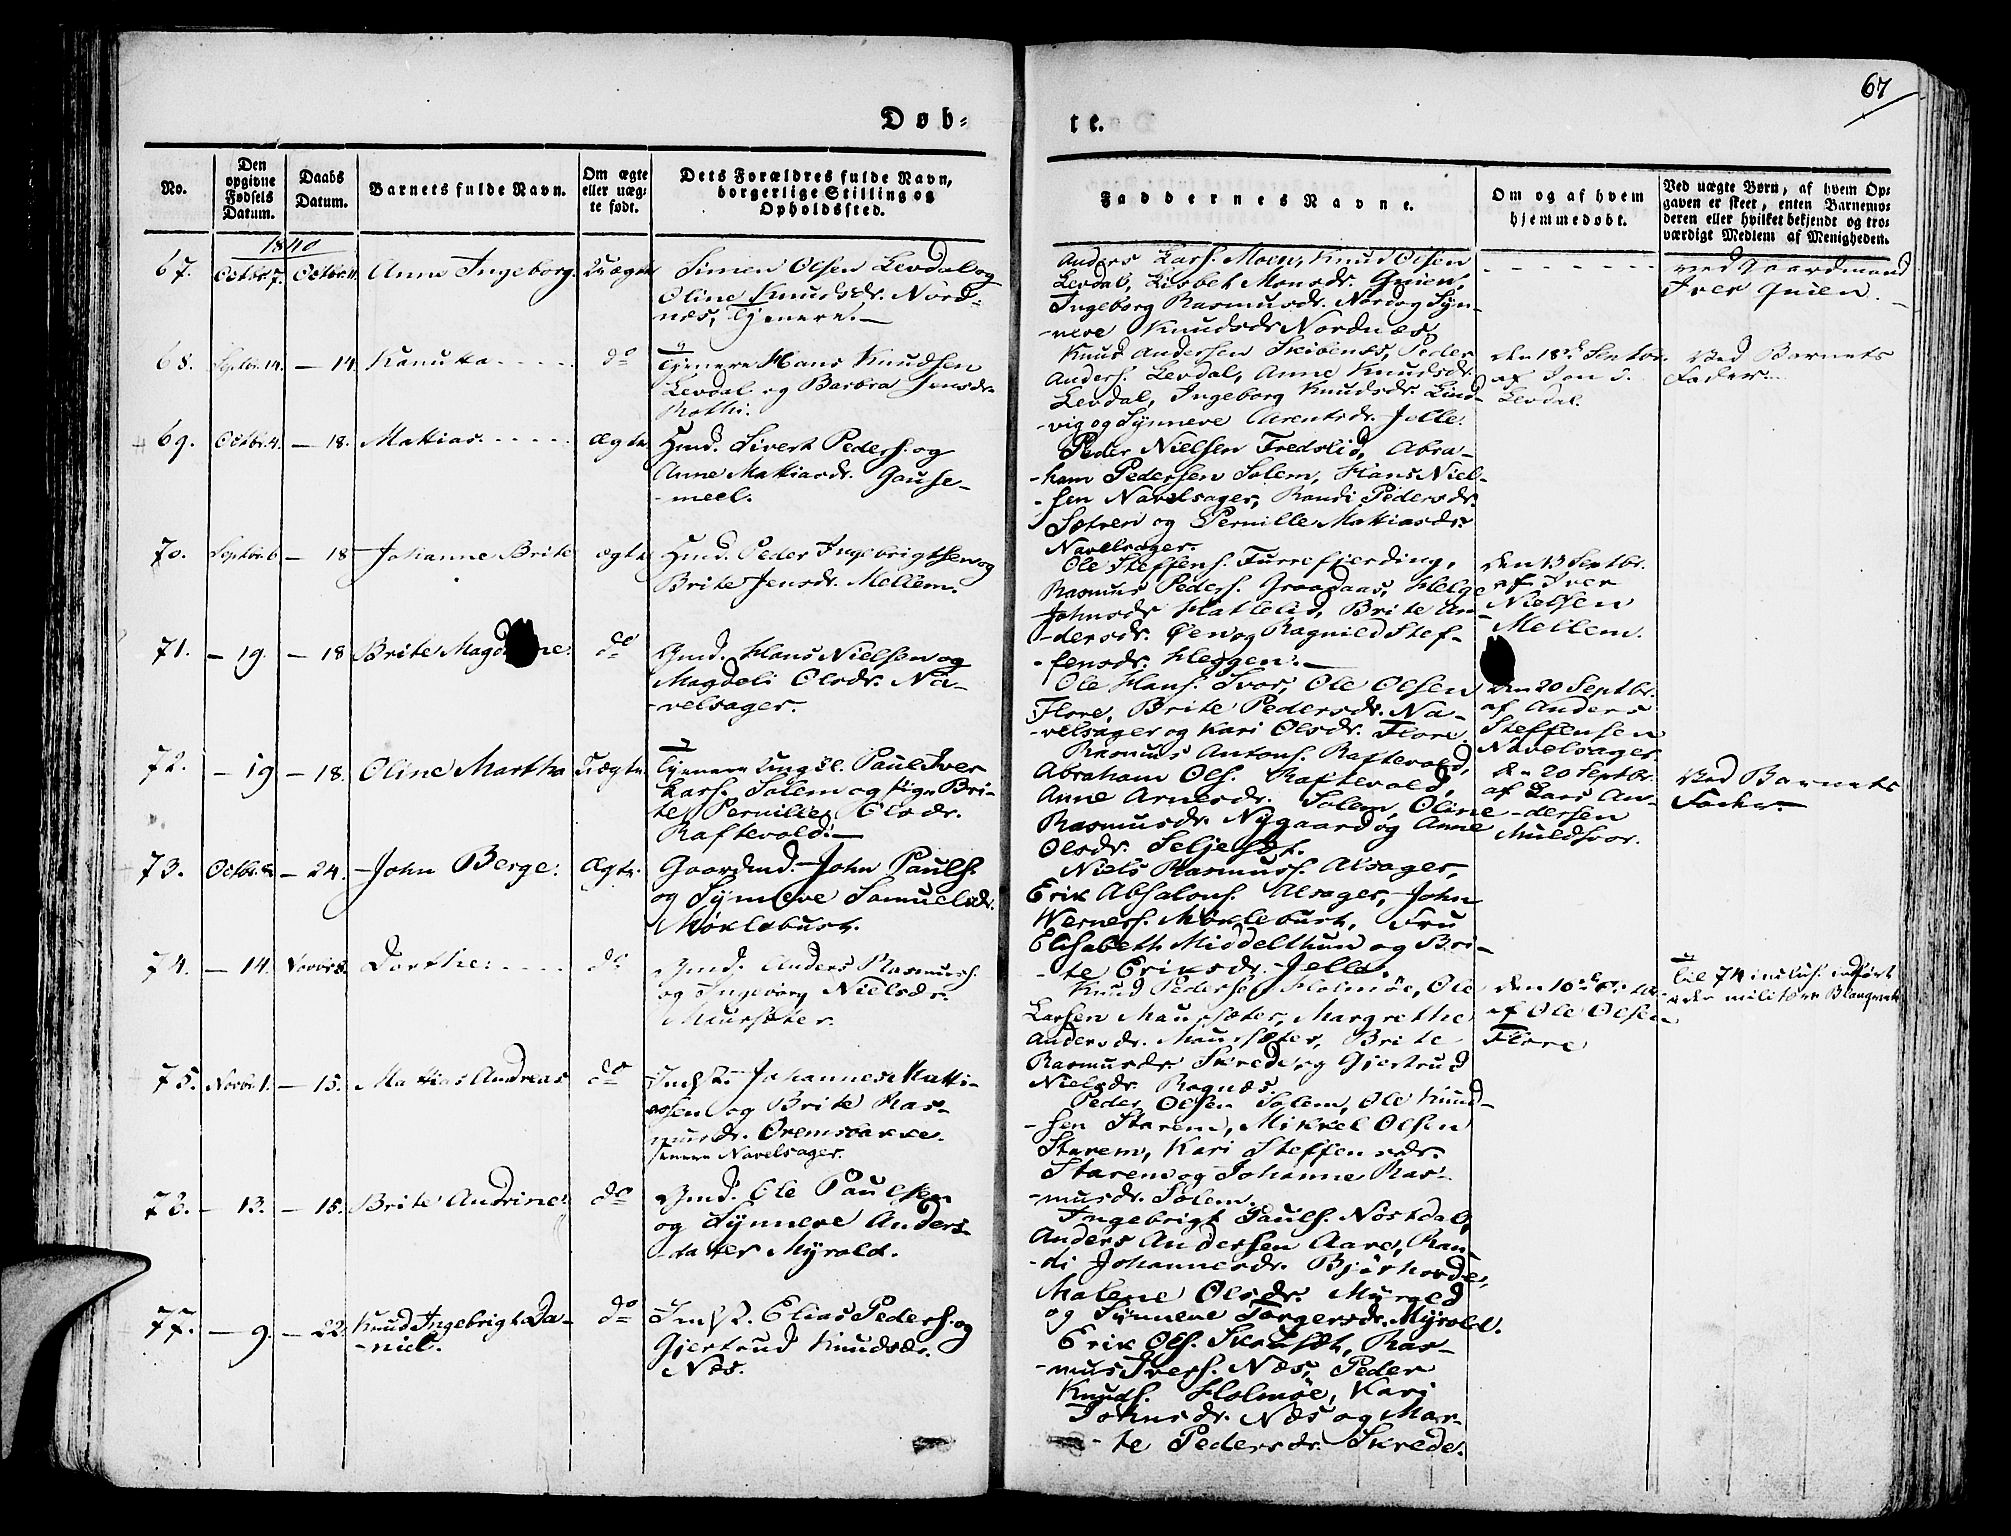 67
Døb-
te.
No.
Den opgivne Fødsels Datum.
Daabs Datum.
Barnets fulde Navn.
Om ægte eller uæg-
te født.
Dets Forældres fulde Navn,
borgerlige Stilling og
Opholdssted.
Faddernes Navne.
Om og af hvem
hjemmedøbt.
Ved uægte Børn, af hvem Op-
gaven er skeet, enten Barnemo-
deren eller hvilket bekjendt og tro-
værdigt Medlem af Menigheden.
1840
67. Octbr. 7. Octbr. 11. Anne Ingeborg. Uægte
Simen Olsen Levdal og
Oline Knudsdr. Nord-
næs, tjenere.
Anders Lars. Moen, Knud Olsen
Levdal, Lisbet Monsdr. Quien,
Ingeborg Rasmusdr. Nord og Syn-
-neve Knudsdr. Nordnæs
ved Gaardmand
Iver Quien.
68. Septbr. 14. — 14. Kanutta do
Tjenere Hans Knudsen
Levdal og Barbra Jensdr.
Rothi.
Knud Andersen Skibenes, Peder
Anders. Levdal, Anne Knudsdr.
Levdal, Ingeborg Knudsdr. Lind-
-vig og Synneve Arentsdr. Jelle.
den 18de Septbr.
af Jon J.
Levdal.
Ved Barnets
Fader.
69. Octbr. 4. — 18. Matias. Ægte
Hmd. Sivert Peders. og
Anne Matiasdr. Gause-
-meel.
Peder Nielsen Fredslid, Abra-
-ham Pedersen Solem, Hans Niel-
-sen Navelsager, Randi Pedersdr.
Sætren og Pernille Matiasdr.
Navelsager.
70. Septbr. 6 — 18 Johanne Brite ægte
Hmd. Peder Ingebrigtsen og
Brite Jensdr. Mellem.
Ole Steffens. Furrefjerding,
Rasmus Peders. Graadaas, Helge
Johnsdr. Hatleli, Brite An-
-dersdr. Øen og Ragnild Stef-
-fensdr. Heggen.
den 13 Septbr.
af Iver
Nielsen
Mellem.
71. — 19. — 18 Brite Magd ne. do
Gmd. Hans Nielsen og
Magdeli Olsdr. Na-
-velsager.
Ole Hans. Svor, Ole Olsen
Flore, Brite Pedersdr. Na-
-velsager og Kari Olsdr. Flore.
den 20 Septbr.
af Anders
Steffensen
Navelsager.
72. — 19 — 18. Oline Martha Uægte
Tjenere Ungkl. Paul Iver
Lars. Solem og Pige Bri-
te Pernille Olsdr.
Raftevold.
Rasmus Antons. Raftevold,
Abraham Ols. Raftevold,
Anne Arnesdr. Solem, Oline
Rasmusdr. Nygaard og Anne
Olsdr. Seljesæt.
den 20 Septbr.
af Lars An-
-dersen
Muldsvor.
Ved Barnets
Fader.
73. Octbr. — 24. John Berge: Ægte
Gaardmd. John Pauls.
og Synneve Samuelsdr.
Møklebust.
Niels Rasmuss. Alsager,
Erik Absalons. Alsager, John
Werners. Møklebust, Fru
Elisabeth Middelthun og Bri-
-te Eriksdr. Jelle.
74. — 14. Novbr. 8. Dorthe: do
Gmd. Anders Rasmuss.
og Ingeborg Nielsdr.
Maursæter.
Knud Pedersen Holmøe, Ole
Larsen Maursæter, Margrethe
Andersdr. Maursæter, Brite
Rasmusdr. Skrede og Gjertrud
Nielsdr. Rognæs.
den 10de
af Ole Olsen
Flore
Til 74 inclus. indført
i den militære Blanquet
75. Novbr. 1. — 15. Matias Andreas do
Indst. Johannes Matti-
-sen og Brite Ras-
musdr. Oremsbakke.
Navelsager.
Peder Olsen Solem, Ole Knud-
-sen Starem, Mikkel Olsen
Starem, Kari Steffensdr.
Starem og Johanne Ras-
-musdr. Solem.
73. — 13. — 15. Brite Andrine: do
Gmd. Ole Paulsen
og Synneve Anders-
-datter Myrold.
Ingebrigt Pauls. Nøstdal,
Anders Andersen Aare, Ran-
-di Johannesdr. Bjørhovde,
Malene Olsdr. Myrold
og Synneve Torgersdr. Myrold.
77. — 9. — 22. Knud Ingebrigt Da-
-niel. do
Indst. Elias Peders. og
Gjertrud Knudsdr.
Næs.
Erik Ols. Skaulsæt, Ras-
-mus Ivers. Næs, Peder
Knuds. Holmøe, Kari
Johnsdr. Næs og Mar-
-te Pedersdr. Skrede.